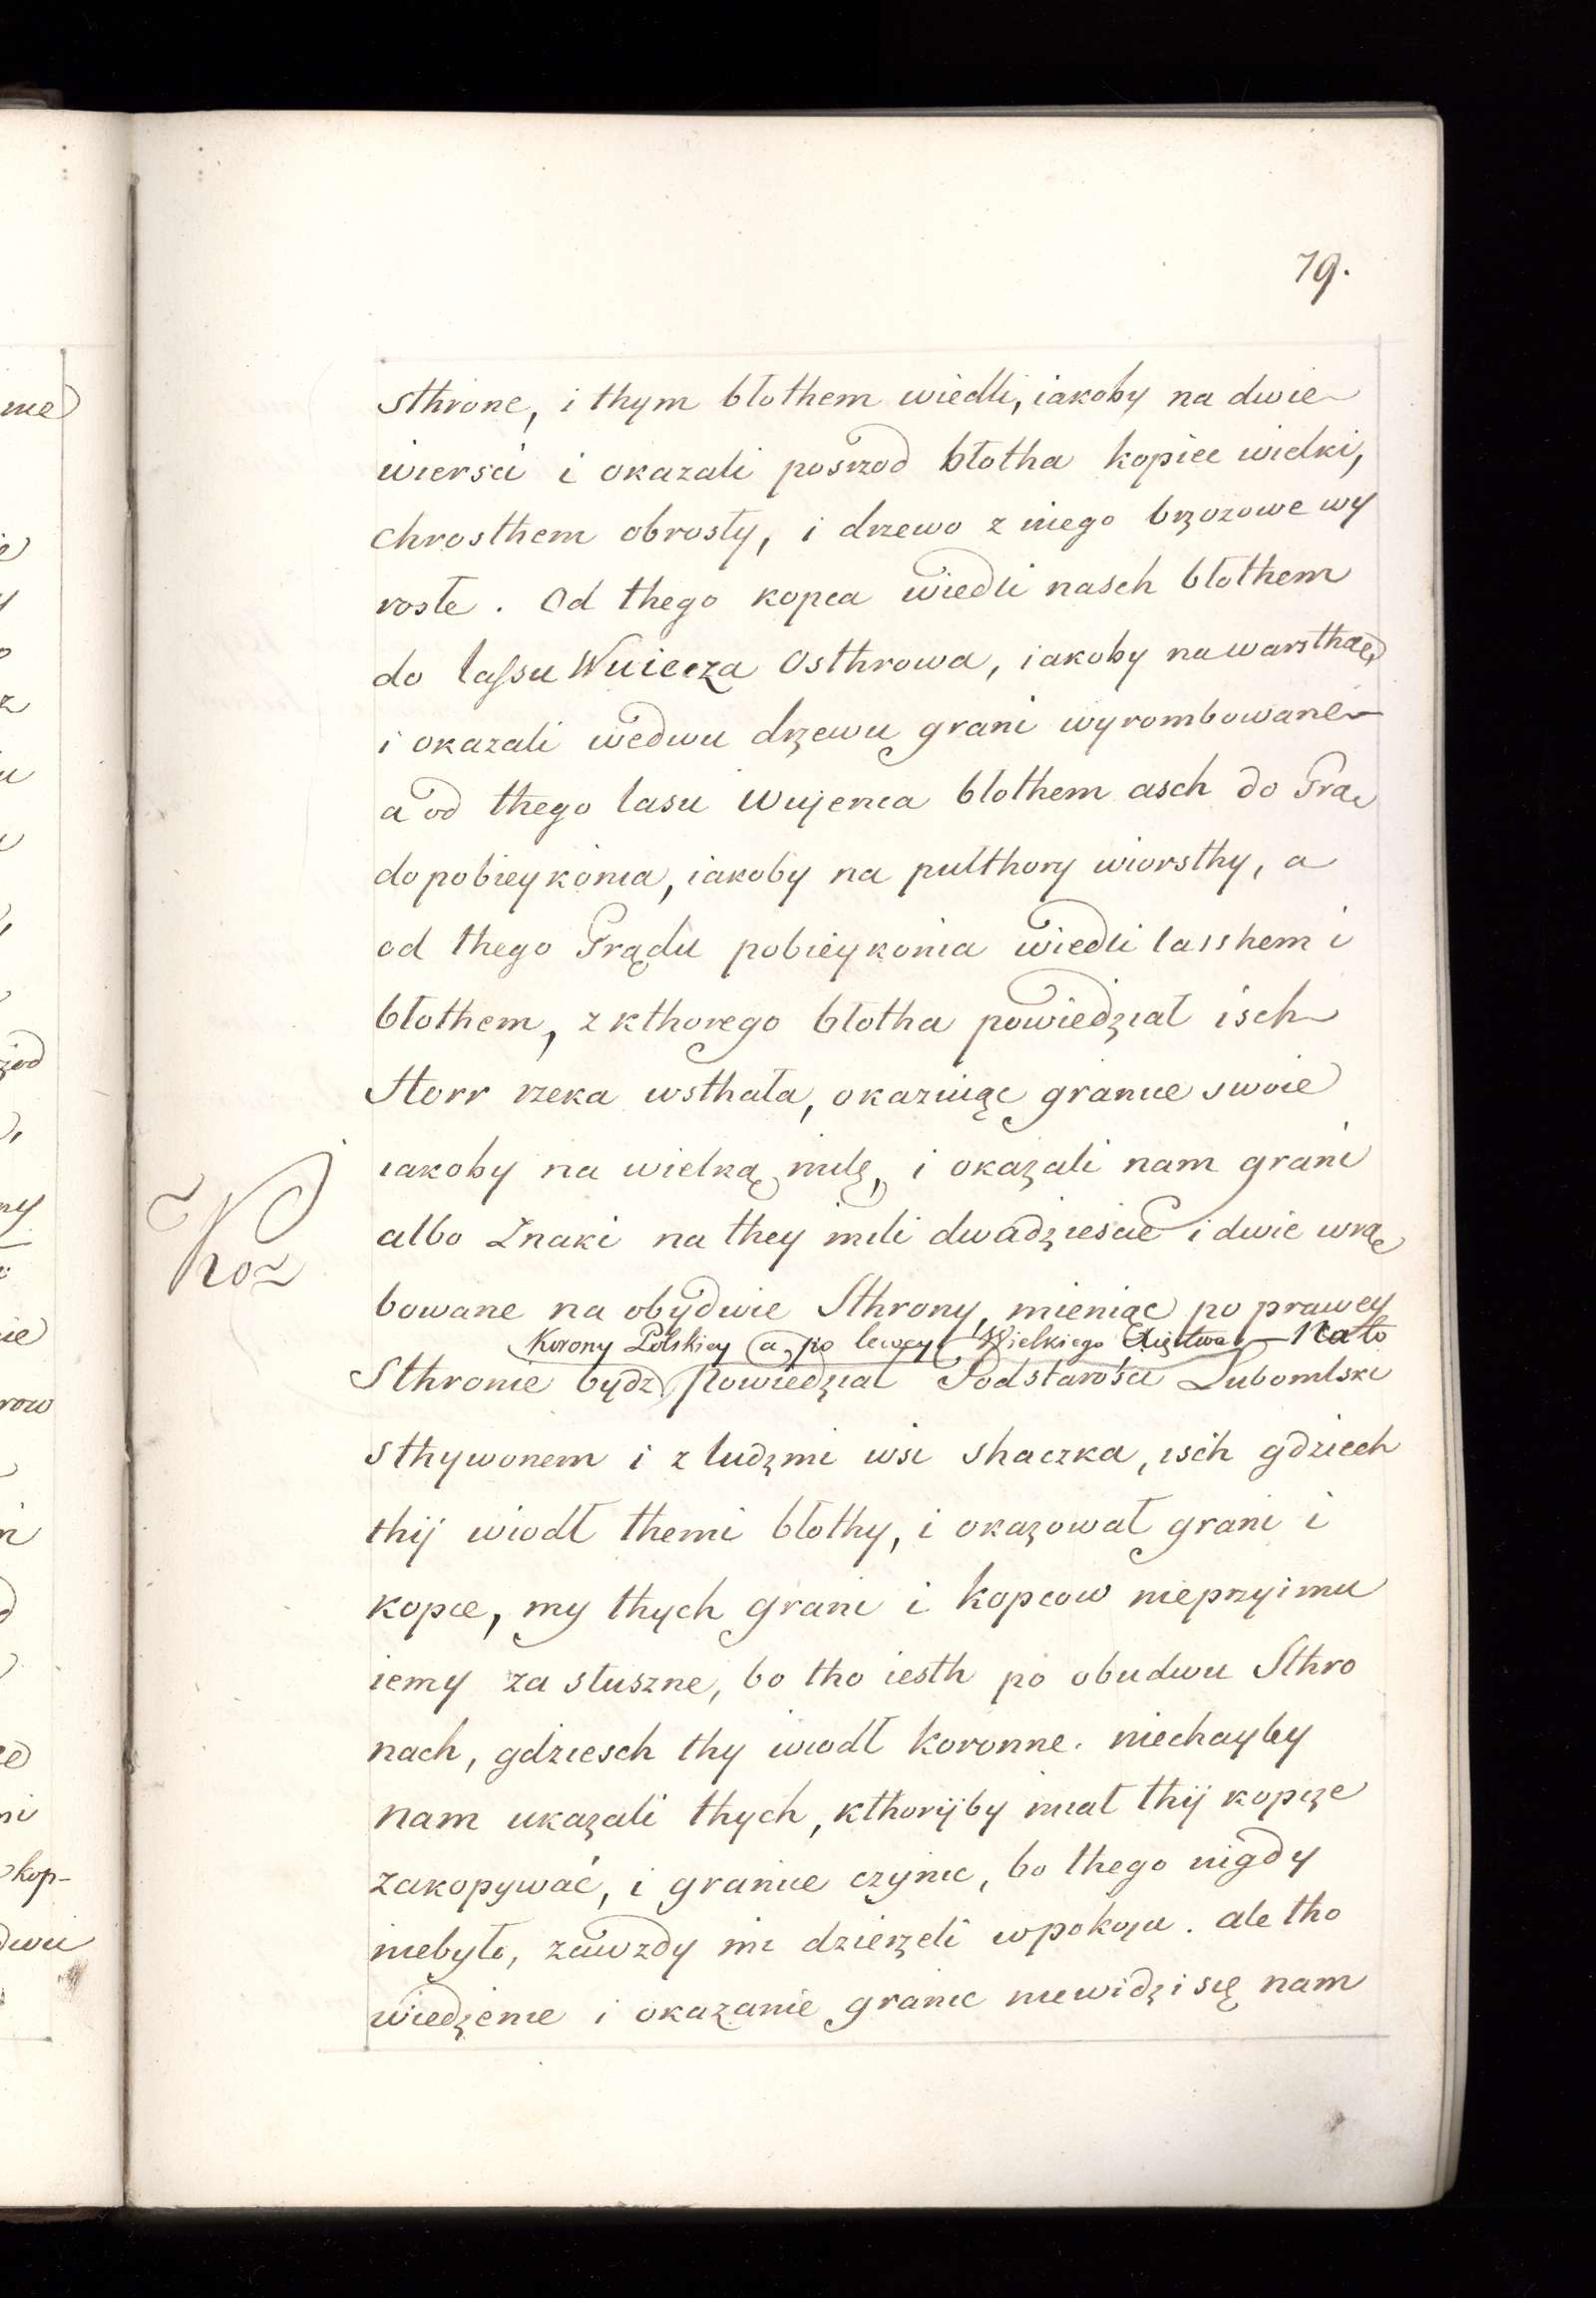 79.
sthrone, i thym błothem wiedli, iakoby na dwie
wiersci i okazali posrzod błotha kopiec wielki,
chrosthem obrosły, i drzewo z niego brzozowe wy
rosłe. Od thego kopca wiedli nasch błothem
do lassu Wuiecza Osthrowa, iakoby na warsthaę,
i okazali wedwu drzewu grani wyrombowane
a od thego lasu Wujenca błothem asch do Gra
do pobieykonia, iakoby na pulthory wiorsthy, a
od thego Grądu pobieykonia wiedli lasshem i
błothem, z kthorego błotha powiedział isch
Storr rzeka wsthała, okazuiąc granice swoie
iakoby na wielką milę, i okazali nam grani
albo Znaki na they mili dwadziescie i dwie wrą
bowane na obydwie Sthrony, mieniąc po prawey
Korony Polskiey a po lewey Wielkiego Xięstwa – Na to
Sthronie bydz powiedział Podstarości Lubomlski
sthywonem i z ludzmi wsi shaczka, isch gdziech
thij wiodł themi błothy, i okazował grani i
kopce, my thych grani i kopcow nieprzyimu
iemy za słuszne, bo tho iesth po obudwu Sthro
nach, gdziesch thy wiodł koronne. niechayby
nam ukazali thych, kthorijby miał thij kopcze
zakopywać, i granice czynic, bo thego nigdy
niebyło, zawzdy mi dzierzeli w pokoju. ale tho
wiedzenie i okazanie granic niewidzi się nam
ne
kop-
dwu